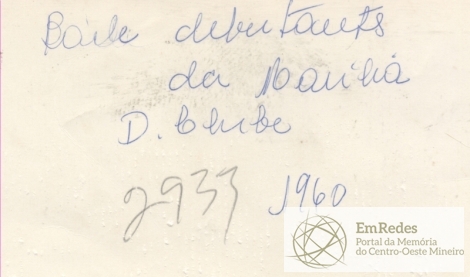 Baile debutants
da Marília
D. Clube
2933 1960
EmRedes
Portal da Memória
do Centro-Oeste Mineiro